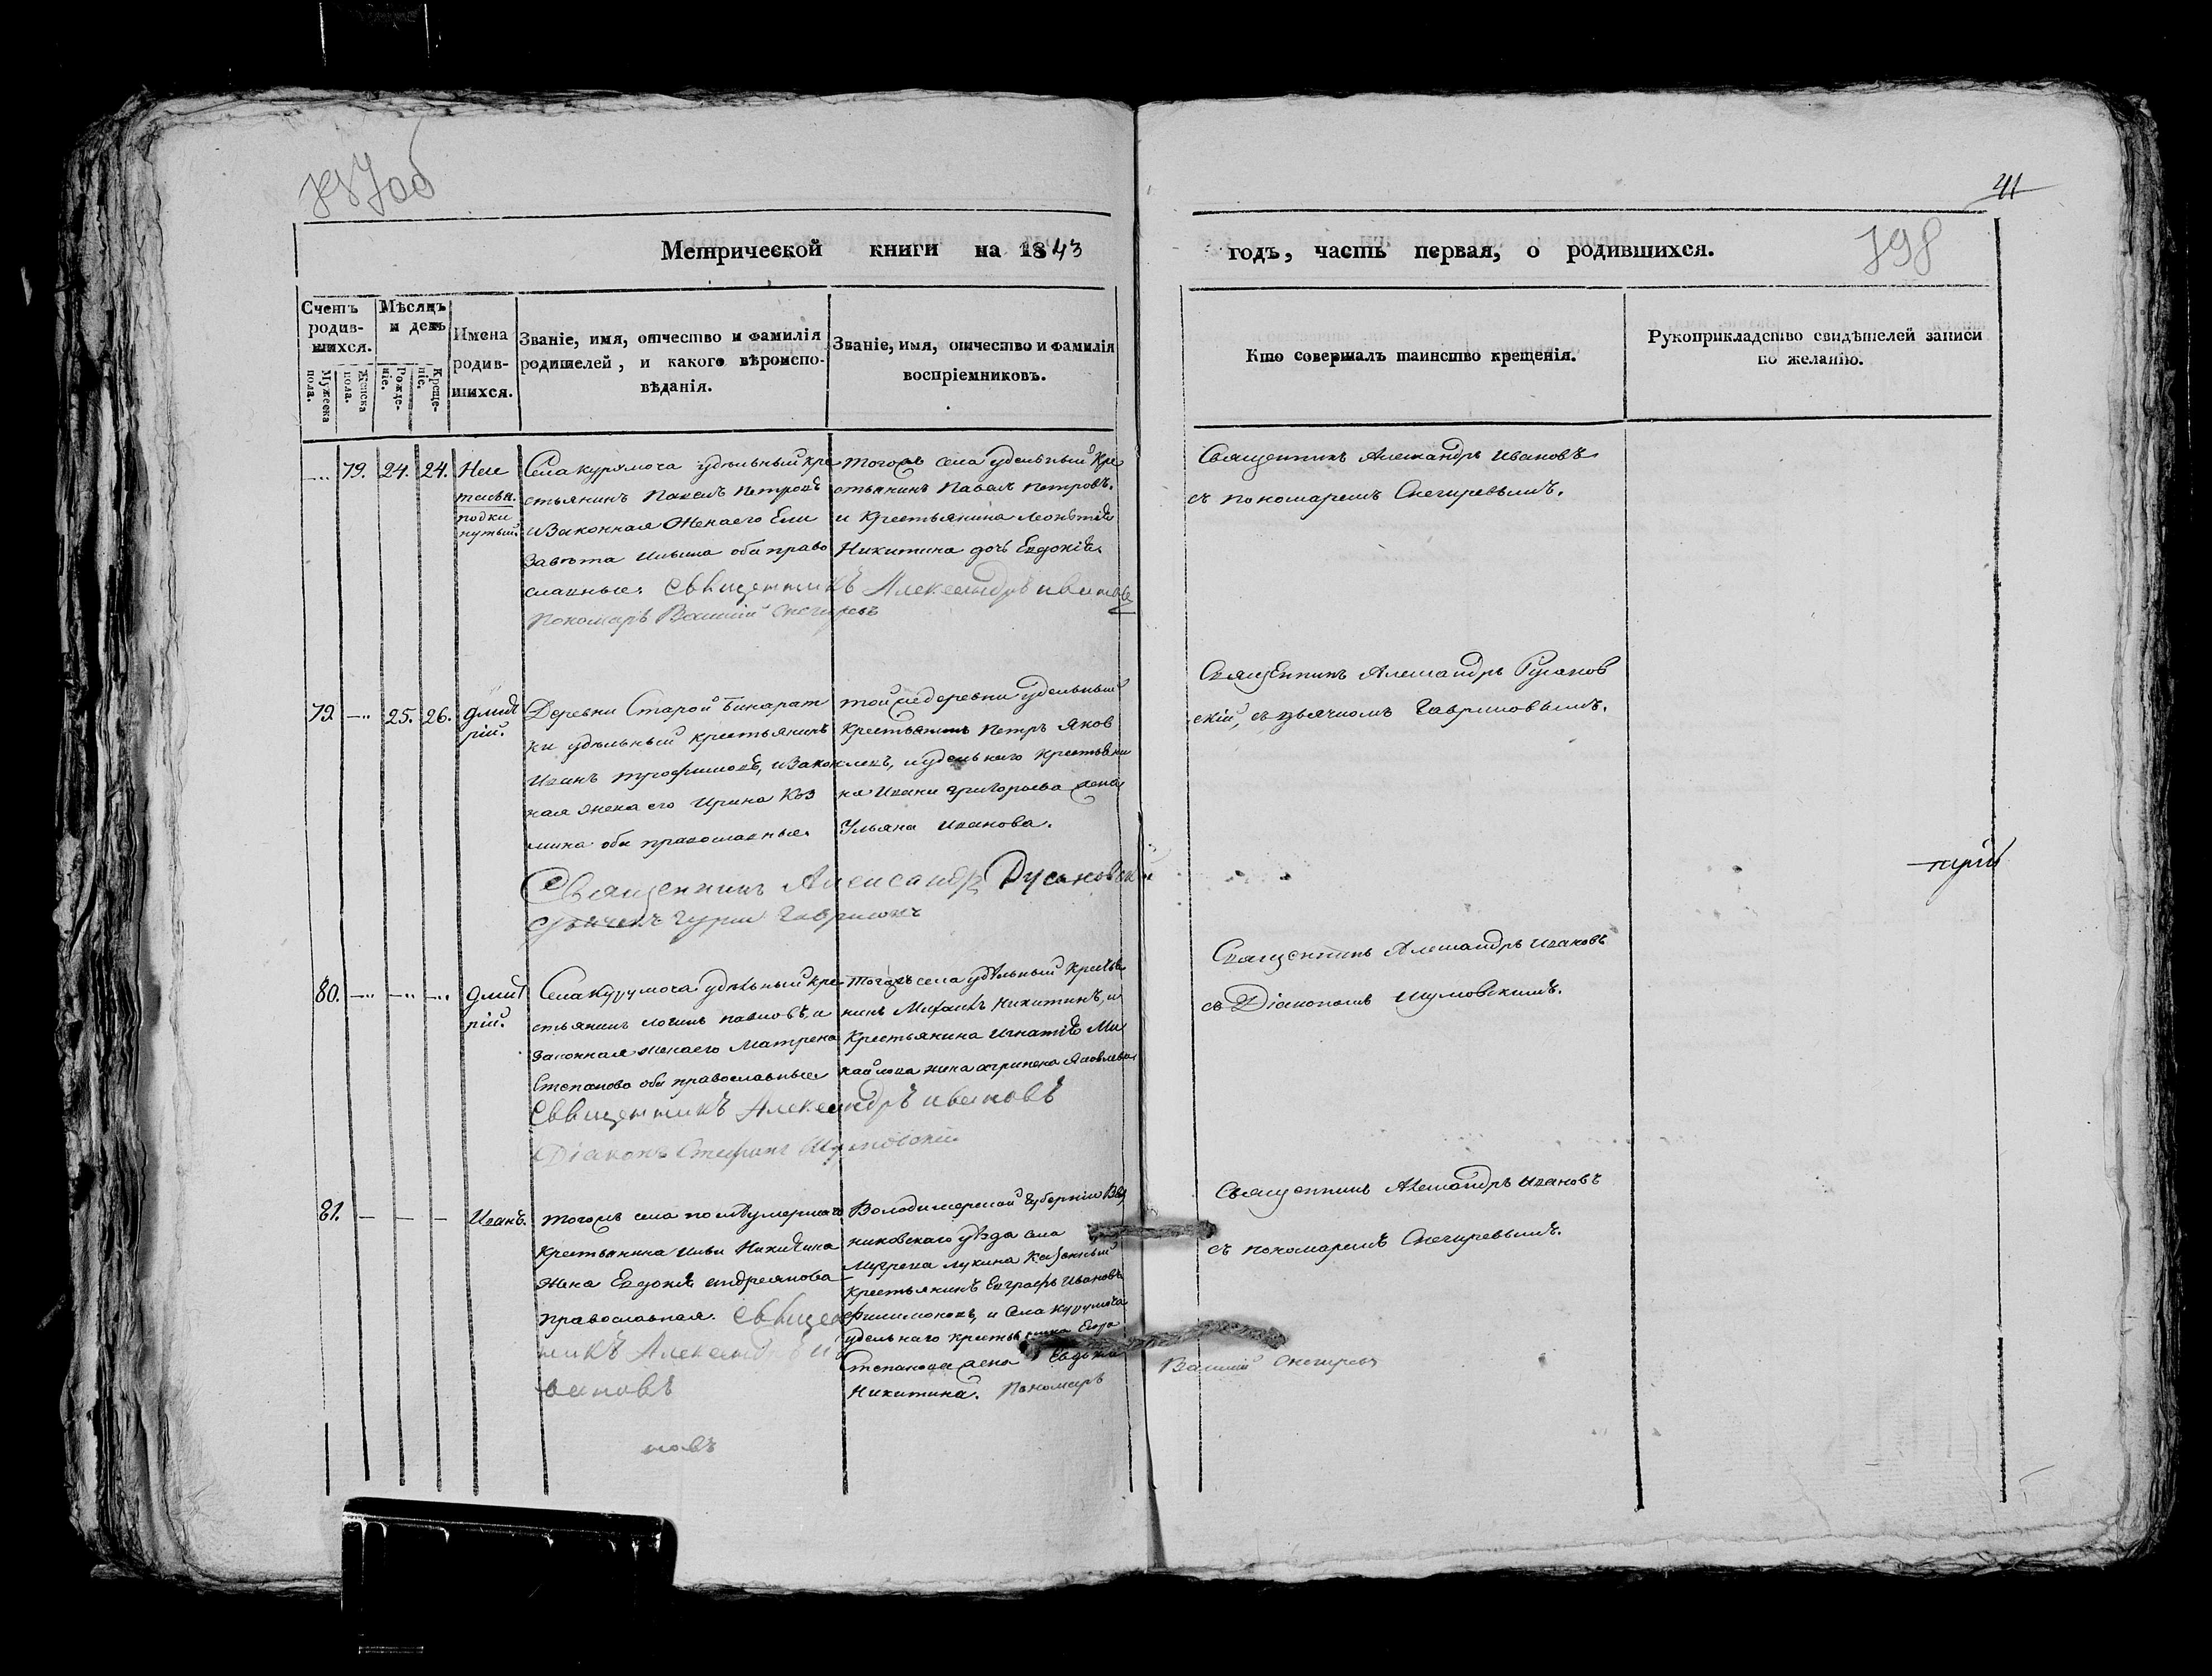 41
Метрической книги на 1843
годъ, часть первая, о родившихся.
798
Счетъ родив-шихся.
Мужеска пола.
Женска пола.
Мѣсяцъ и день
Рожде-ніе.
Креще-ніе.
Имена родив-шихся.
Званіе, имя, отчество и фамилія
родителей, и какого вѣроиспо-
вѣданія.
Званіе, имя, отчество и фамилія
воспріемниковъ.
Кто совершалъ таинство крещенія.
Рукоприкладство свидѣтелей записи
по желанію.
79. 24. 24.
подки
путый.
Села Курумоча удѣльный кре
стьянинъ Павелъ Петровъ
и законная жена его Ели
завѣта Ильина оба право
славные. Священникъ Александръ Ивановъ
Пономарь Василій Снегиревъ
Тогожъ села удельный кре
стьянинъ Павелъ Петровъ.
и крестьянина Леонтія
Никитина дочь Евдокія.
Священникъ Александръ Ивановъ
съ пономаремъ Снегиревымъ.
79. 25. 26.
Дмит
рій.
Деревни Старой Бинарат
ки удѣльный крестьянинъ
Иванъ Трофимовъ, и закон
ная жена его Ирина Коз
мина оба православные.
Священникъ Александръ Русановскій
Гурій Гавриловъ
Той же деревни удельный
крестьянинъ Петръ Яков
левъ, и удельнаго крестьяни
на Ивана Григорьева жена
Ульяна Иванова.
Священникъ Александръ Русанов
скій, съ дьячкомъ Гавриловымъ.
80.
Дмит
рій.
Села Курумоча удѣльный кре
стьянинъ Логинъ Павловъ, и
законная жена его Матрена
Степанова оба православные
Священникъ Александръ Ивановъ
Діаконъ Стефанъ Шумовскій
Тогожъ села удѣльный крестья
нинъ Михаилъ Никитинъ, и
крестьянина Игнатія Ми
хайлова жена Агрипена Яковлева
Священникъ Александръ Ивановъ
съ Діакономъ Шумовскимъ.
81.
Иванъ.
Тогожъ села умершаго
крестьянина Ильи Никитина
жена Евдокія Андреянова
православная. Священ
никъ Александръ И
вановъ
новъ
Володимерской Губерніи Вяз
никовскаго уѣзда села
Лукина Казенный
крестьянинъ Евграфъ Ивановъ
Филимоновъ, и села Курумоча
удельнаго крестьянина Егора
Степанова жена
Никитина. Пономарь
Василій Снегиревъ
Священникъ Александръ Ивановъ
съ пономаремъ Снегиревымъ.